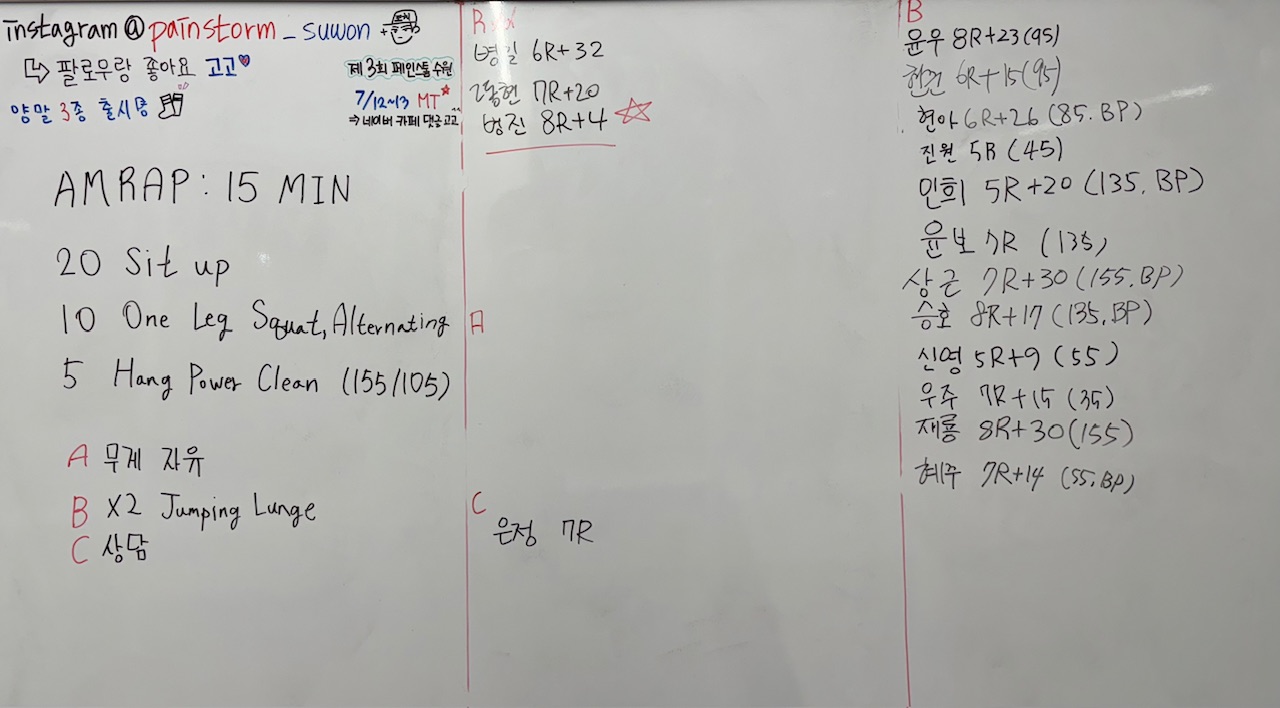 instagram@painstorm_suwon
↳ 팔로우랑 좋아요 고고♥
양말 3종 출시중
제 3회 페인스톰 수원
7/12~13 MT★
⇒ 네이버 카페 댓글고고^^
AMRAP : 15 MIN
20 Sit up
10 One Leg Squat, Alternating
5 Hang Power Clean (155/105)
A 무게 자유
B X2 Jumping Lunge
C 상담
Rxd
병길 6R+32
동현 7R+20
병진 8R+4 ☆
A
C
은정 7R
B
윤우 8R+23(95)
현건 6R+15(95)
현아 6R+26 (85.BP)
진원 5R (45)
민희 5R+20 (135.BP)
윤보 7R (135)
상근 7R+30 (155.BP)
승호 8R+17 (135.BP)
신영 5R+9 (55)
우주 7R+15 (35)
재룡 8R+30(155)
혜주 7R+14 (55.BP)